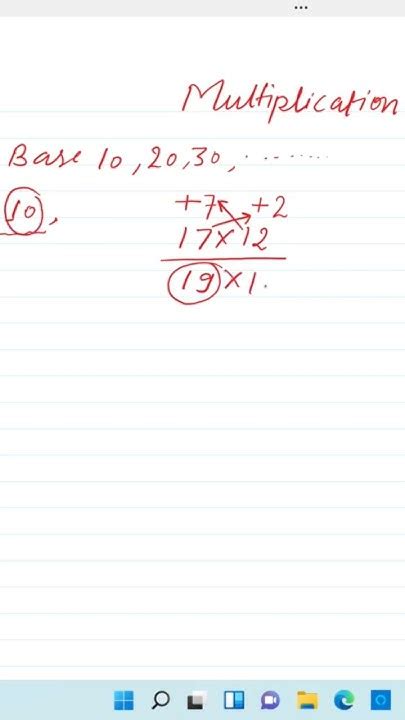 Multiplication
Base 10, 20, 30, ........
10,
+7 +2
17 x 12
19 x 1.